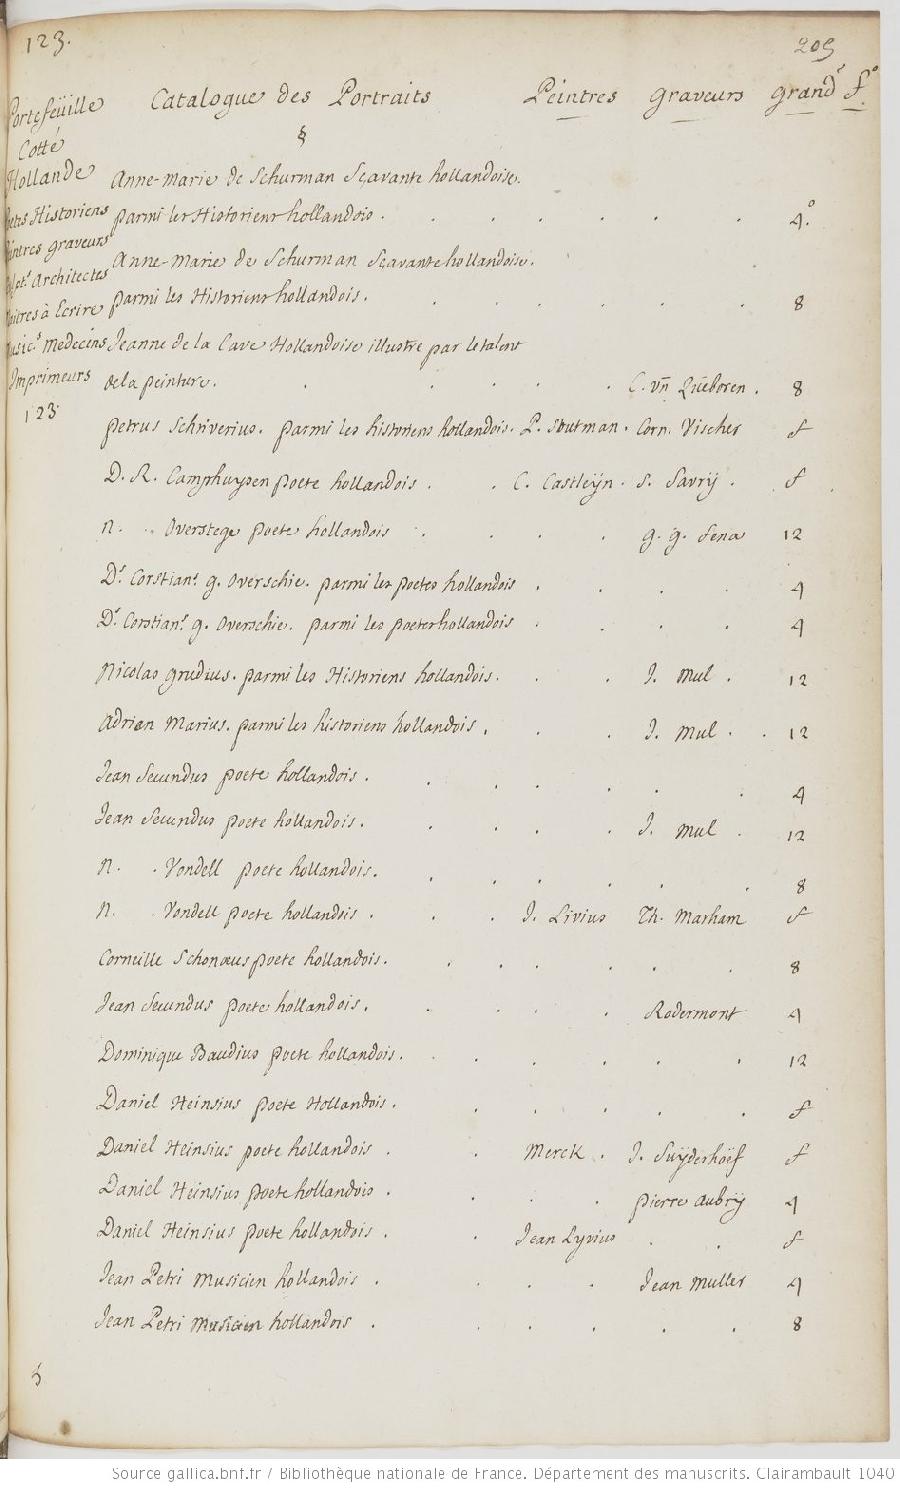 123.
205
Portefeüille Catalogue des Portraits Peintres graveurs grand.r f.o
Cotté §
Hollande
Anne-marie de Schurman Sçavante hollandoise.
Poetes Historiens parmi les Historiens hollandois . . . . . . 4.o
Peintres graveurs
Anne-Marie de Schurman Sçavante hollandoise.
Sculpt.rs Architectes
Maitres à Ecrire parmi les Historiens hollandois. . . . . . 8
Music.s Medecins Jeanne de la Cave Hollandoise illustre par le talent
Imprimeurs de la peinture. . . . . . C. vn Queboren . 8
123.
petrus Schriverius. parmi les historiens hollandois. P. Soutman . Corn. Vischer f
D. R. Camphuysen poete hollandois . . C. Castleÿn . S. Savrÿ . f
n. .. Overstege poete hollandois . . . . g. g. Sena 12
D.r Corstian.s g. Overschie. parmi les poetes hollandois . . . . 4
D.r Corstian.s g. Overschie. parmi les poetes hollandois . . . . 4
Nicolas grudius. parmi les Historiens hollandois. . . J. Mul . 12
Adrien Marius. parmi les historiens hollandois. . . J. Mul . . 12
Jean Secundus poete hollandois . . . . . . . 4
Jean Secundus poete hollandois. . . . . J. Mul . 12
N. . Vondell poete hollandois. . . . . . . 8
N. Vondell poete hollandois . . . J. Livius Th. Matham f
Corneille Schonæus poete hollandois. . . . . . . 8
Jean Secundus poete hollandois. . . . Rodermont 4
Dominique Baudius poete hollandois. . . . . . . 12
Daniel Heinsius poete Hollandois. . . . . . f
Daniel Heinsius poete hollandois . . Merck . J. Suÿderhoëf f
Daniel Heinsius poete hollandois . . . . pierre aubrÿ 4
Daniel Heinsius poete hollandois . . Jean Lyvius . . f
Jean Petri Musicien hollandois . . . . Jean Muller 4
Jean Petri Musicien hollandois . . . . . . 8
Source gallica.bnf.fr / Bibliothèque nationale de France. Département des manuscrits. Clairambault 1040